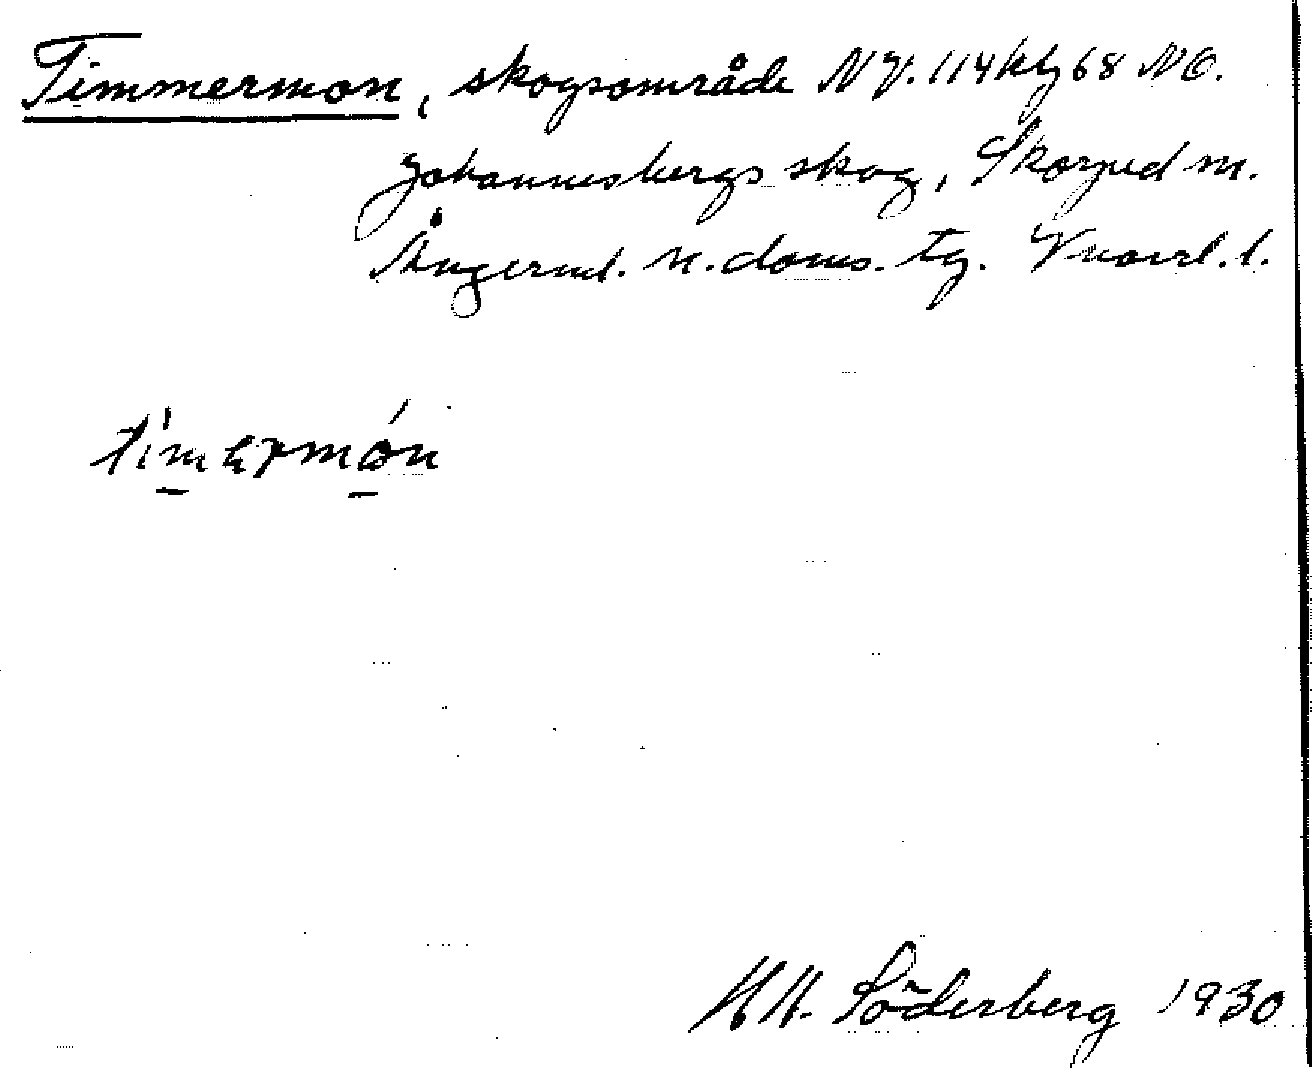 Timmermon, skogsområde NY. 114 kbl 68 NO.
Johannesbergs skog, Skorped m.
Ångerml. n. doms. tg. Vnorrl. l.
timermón
H. Söderberg 1930